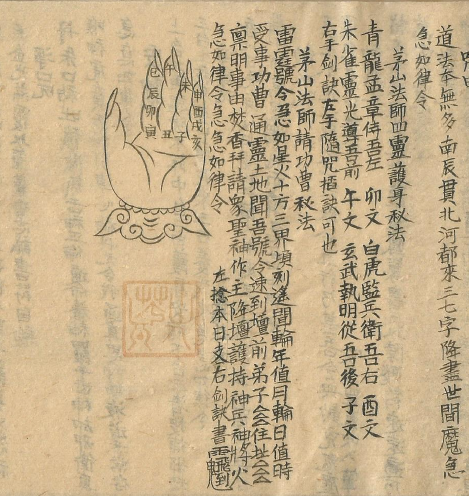 道法本無多南辰貫北河都來三七字降盡世間魔急
急如律令
茅山法師四靈護身秘法
青龍孟章侍吾左 卯文 白虎監兵衛吾右 酉文
朱雀靈光導吾前 午文 玄武執明從吾後 子文
右手劍訣左手隨咒掐訣可也
茅山法師請功曹秘法
雷霆號令急如星火十方三界頃刻遙聞輪年值月輪日值時
受事功曹通靈土地聞吾號令速到壇前弟子厶厶住址厶厶
禀明事由焚香拜請眾聖神作主降壇護持神兵神將火
急如律令急急如律令
左捻本日支右劍訣書
巳 午 未 申 酉 戌 亥
辰 卯 寅 丑 子